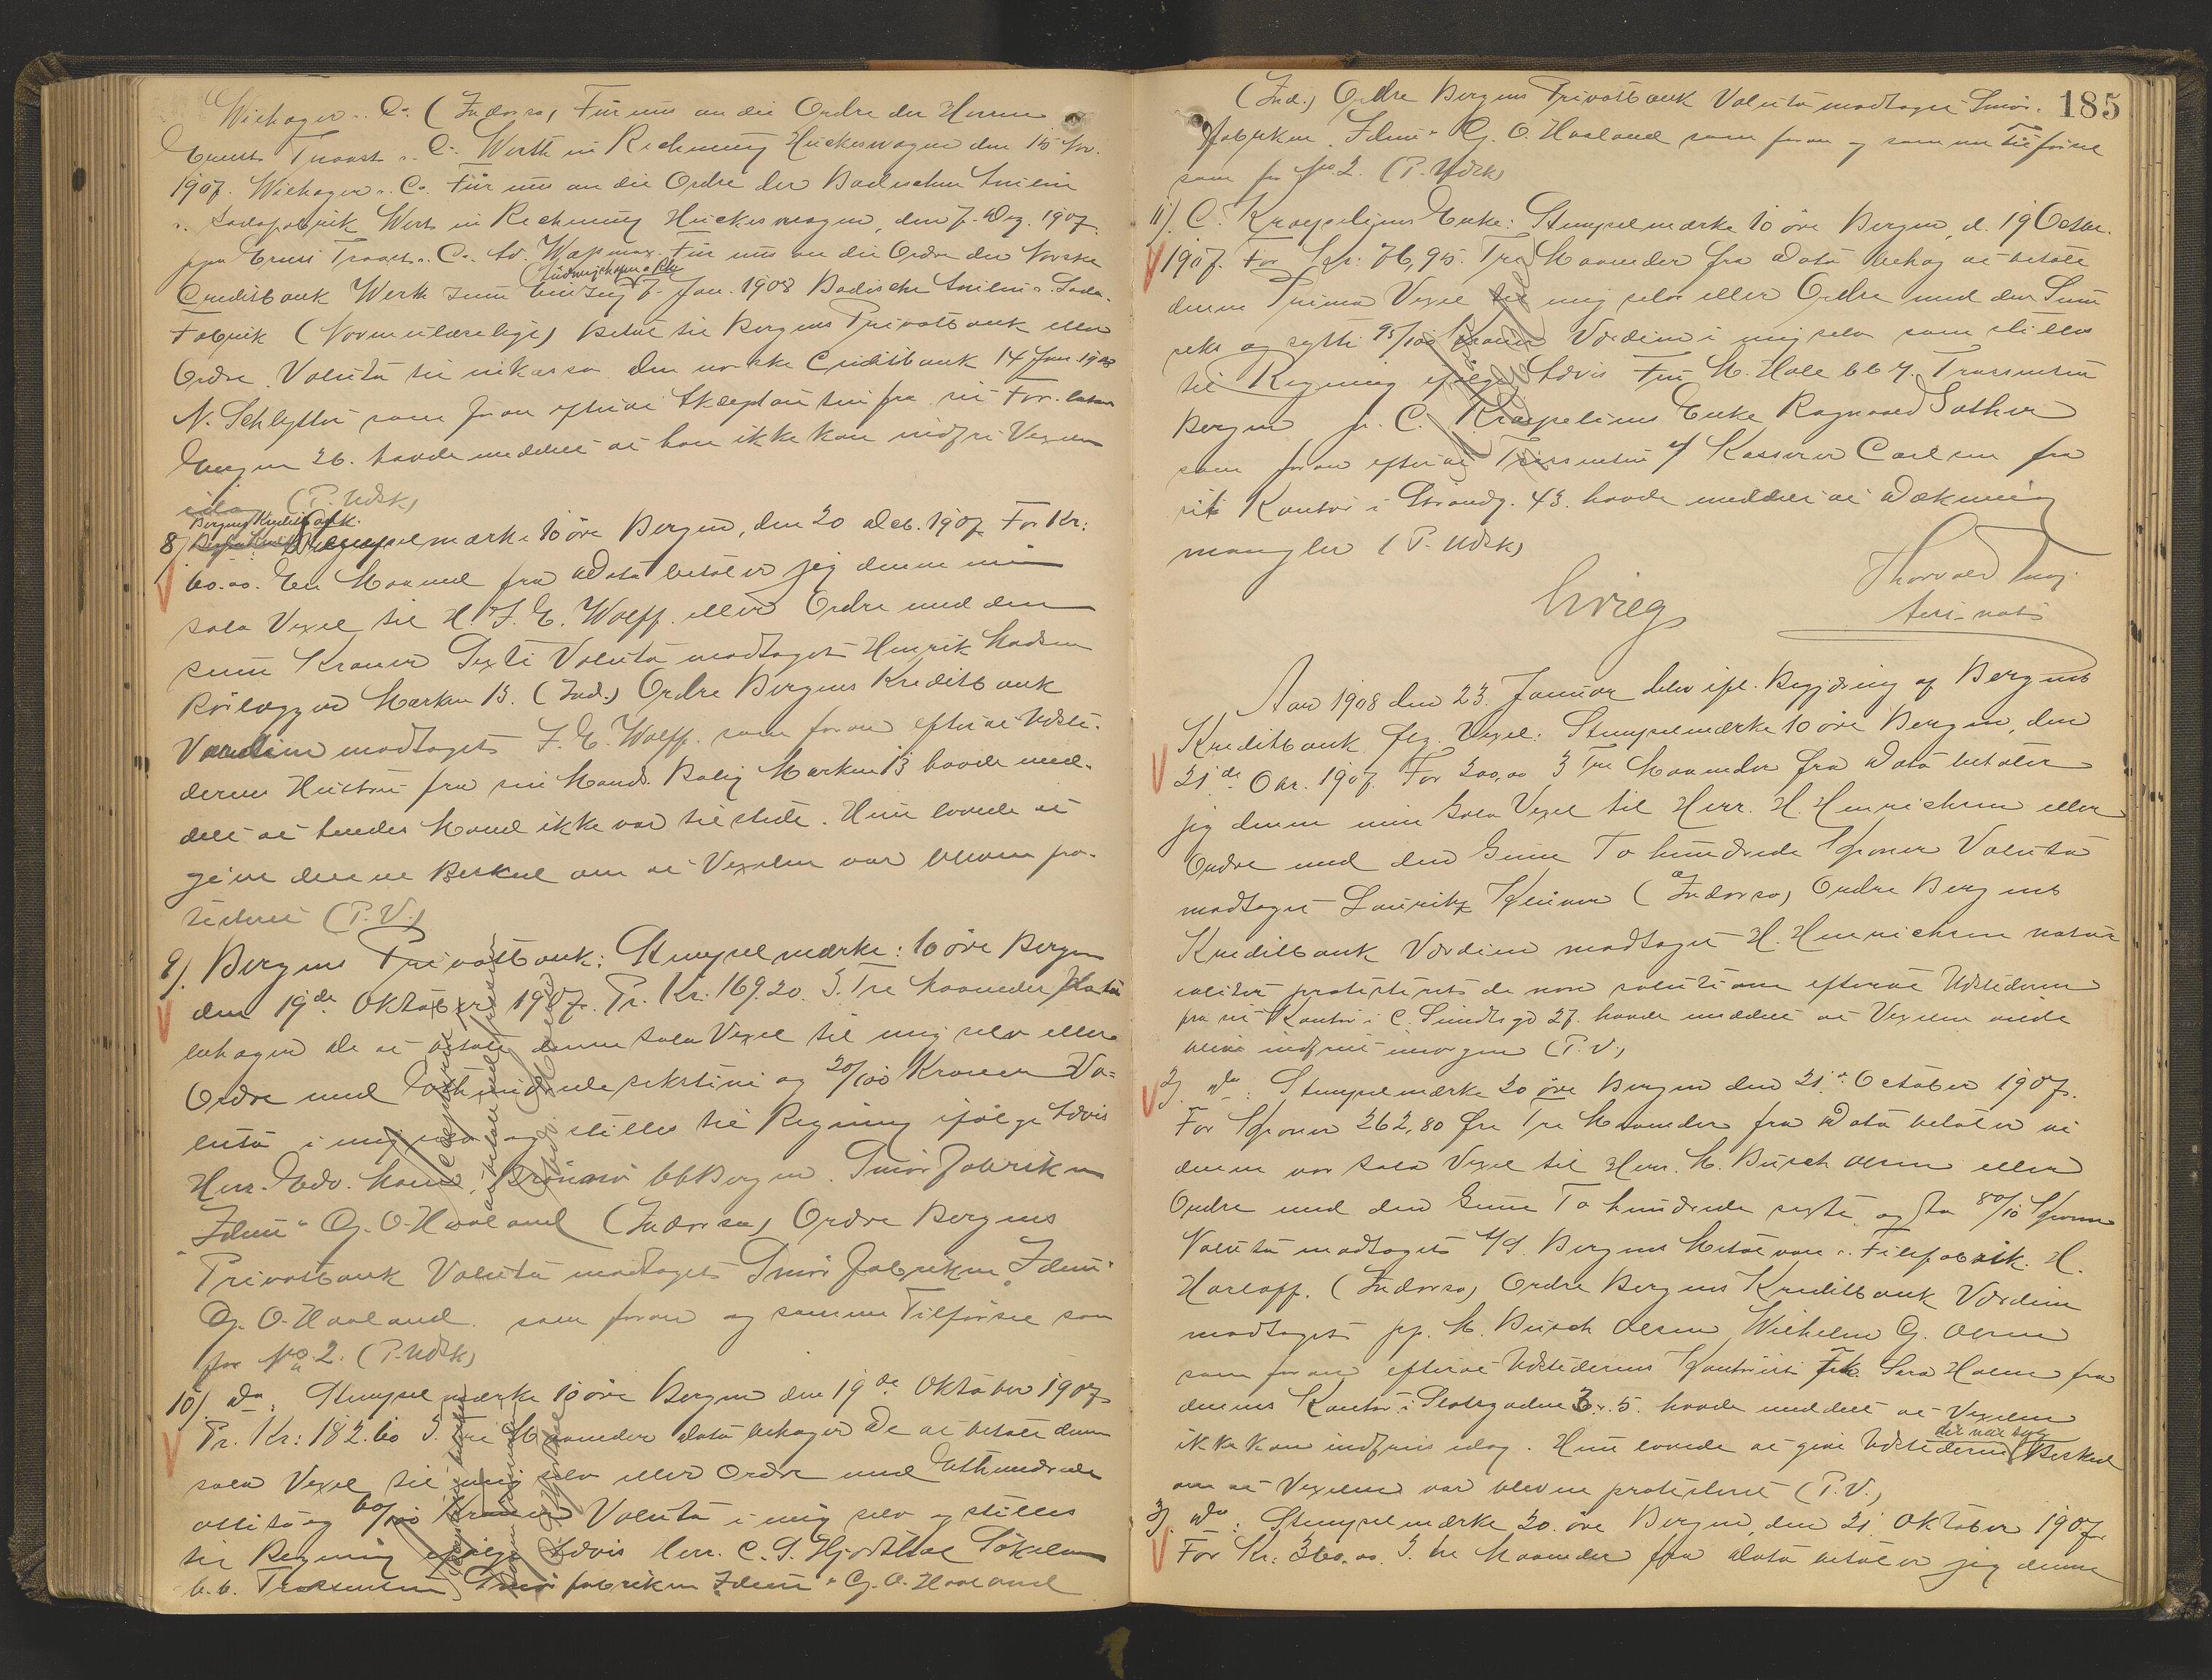 Wiehager & Co (Indorso) Für uns an die Ordre der Herren
Ernst Troost & Co Werth in Rechnung Hückeswagen den 15 Nov.
1907. Wiehager & Co. Für uns an die Ordre der Badischen Anilin
& Sodafabrik Werth in Rechnung Hückeswagen, den 7. Dez. 1907.
ppa Ernst Troost & Co. Für uns an die Ordre der Norske
Ludwigshafen a. Rh
Creditbank Werth zum Einzug 7. Jan. 1908 Badische Anilin & Soda-
Fabrik (Navn ulæselige) Betal til Bergens Privatbank eller
Ordre. Valuta til inkasso den norske Creditbank 14 Jan. 1908
N. Schlytter som foran efterat Akceptanten fra sin For-
Engen 26. havde meddelt at han ikke kan indfri Vexelen
idag (P. Udsk)
Bergens Kreditbank.
8) Stempelmærke 10 øre Bergen, den 20 Deb. 1907 For Kr:
60.00. En Maaned fra Dato betaler jeg denne min
sola Vexel til H. F. E. Wolff eller Ordre med den
sum Kroner Sexti Valuta modtaget Henrik Madsen
Rørlægger Marken 13. (Ind.) Ordre Bergens Kreditbank
Værdien modtaget F. E. Wolff. som foran efterat Udste-
derens Hustru fra sin Mands Bolig Marken 13 havde med-
delt at hendes Mand ikke var tilstede. Hun lovede at
give denne Besked om at Vexelen var bleven pro-
testeret (P.V.)
9). Bergens Privatbank: Stempelmærke: 10 øre Bergen
den 19de Oktober 1907. Pr. Kr. 169.20. 3. Tre Maaneder Dato
behager De at betale denne sola Vexel til mig selv eller
Ordre med Ethundrede sekstini og 20/100 Kroner Va-
luta i mig selv og stilles til Regning ifølge Advis
Herr. Edv. bb Bergen. Smørfabriken
"Idun" G. O. Haaland (Indorso) Ordre Bergens
Privatbank Valuta modtaget Smørfabriken "Idun"
G. O. Haaland. som foran og samme Tilførsel som
for No 2. (P. Udsk)
10). Do: Stempelmærke 10 øre Bergen den 19de Oktober 1907
Pr. Kr: 182.60 3. Tre Maaneder Dato behager De at betale denne
sola Vexel til mig selv eller Ordre med Ethundrede
ottito og 60/100 Kroner Valuta i mig selv og stilles
til Regning ifølge Advis Herr. C. S. Hjortdal
b.b. Trassenten Smørfabriken "Idun" G. O. Haaland
185
(Ind.) Ordre Bergens Privatbank Valuta modtaget Smør-
fabriken "Idun" G. O. Haaland som foran og samme Tilførsel
som for No 2. (P. Udsk)
11). C. Kraepeliens Enke: Stempelmærke 10 øre Bergen, d. 19 Octbr.
1907. For Kr: 76,95. Tre Maaneder fra Dato behag at betale
denne Prima Vexel til mig selv eller Ordre med den Sum
seks og sytti 95/100 Kroner Værdien i mig selv som stilles
til Regning ifølge Advis Fru M. Hole bby. Trassenten
Bergen pr. C. Kraepeliens Enke Ragnvald Sather
som foran efterat Trassenten v/ Kasserer Carlsen fra
sit Kontor i Strandg. 43. havde meddelt at Dækning
mangler (P. Udsk)
Thorvald
Grieg
Aar 1908 den 23. Januar blev ifl. Begjæring af Bergens
Kreditbank flg. Vexel: Stempelmærke 10 øre Bergen, den
21de Obr. 1907. For 200,00 3 Tre Maaneder fra Dato betaler
jeg denne min Sola Vexel til Herr. H. Henrichsen eller
Ordre med den Sum To hundrede Kroner Valuta
modtaget Lauritz (Indorso) Ordre Bergens
Kreditbank Værdien modtaget H. Henrichsen
protesteret de non solutione efterat Udstederen
fra sit Kontor i C. Sundtsgd 27. havde meddelt at Vexelen vilde
blive indfriet imorgen (P.V.)
2). Do: Stempelmærke 20 øre Bergen den 21de October 1907.
For Kroner 262,80 Øre Tre Maaneder fra Dato betaler vi
denne vor Sola Vexel til Herr. M. Busch Olsen eller
Ordre med den Sum To hundrede sexti og to 80/10 Kroner
Valuta modtaget A/S. Bergens Metalvare & Filefabrik. H.
Harloff. (Indorso) Ordre Bergens Kreditbank Værdien
modtaget pp. M. Busch Olsen Wilhelm G. Olsen
som foran efterat Udstederens Kontorist Frk. Sara Holm fra
dennes Kontor i Slotsgaden 3 & 5. havde meddelt at Vexelen
der var syg
ikke kan indfries idag. Hun lovede at give Udstederen Besked
om at Vexelen var bleven protesteret (P.V.)
3) Do: Stempelmærke 20. øre Bergen, den 21. Oktober 1907.
For Kr: 360.00. 3. tre Maaneder fra Dato betaler jeg denne